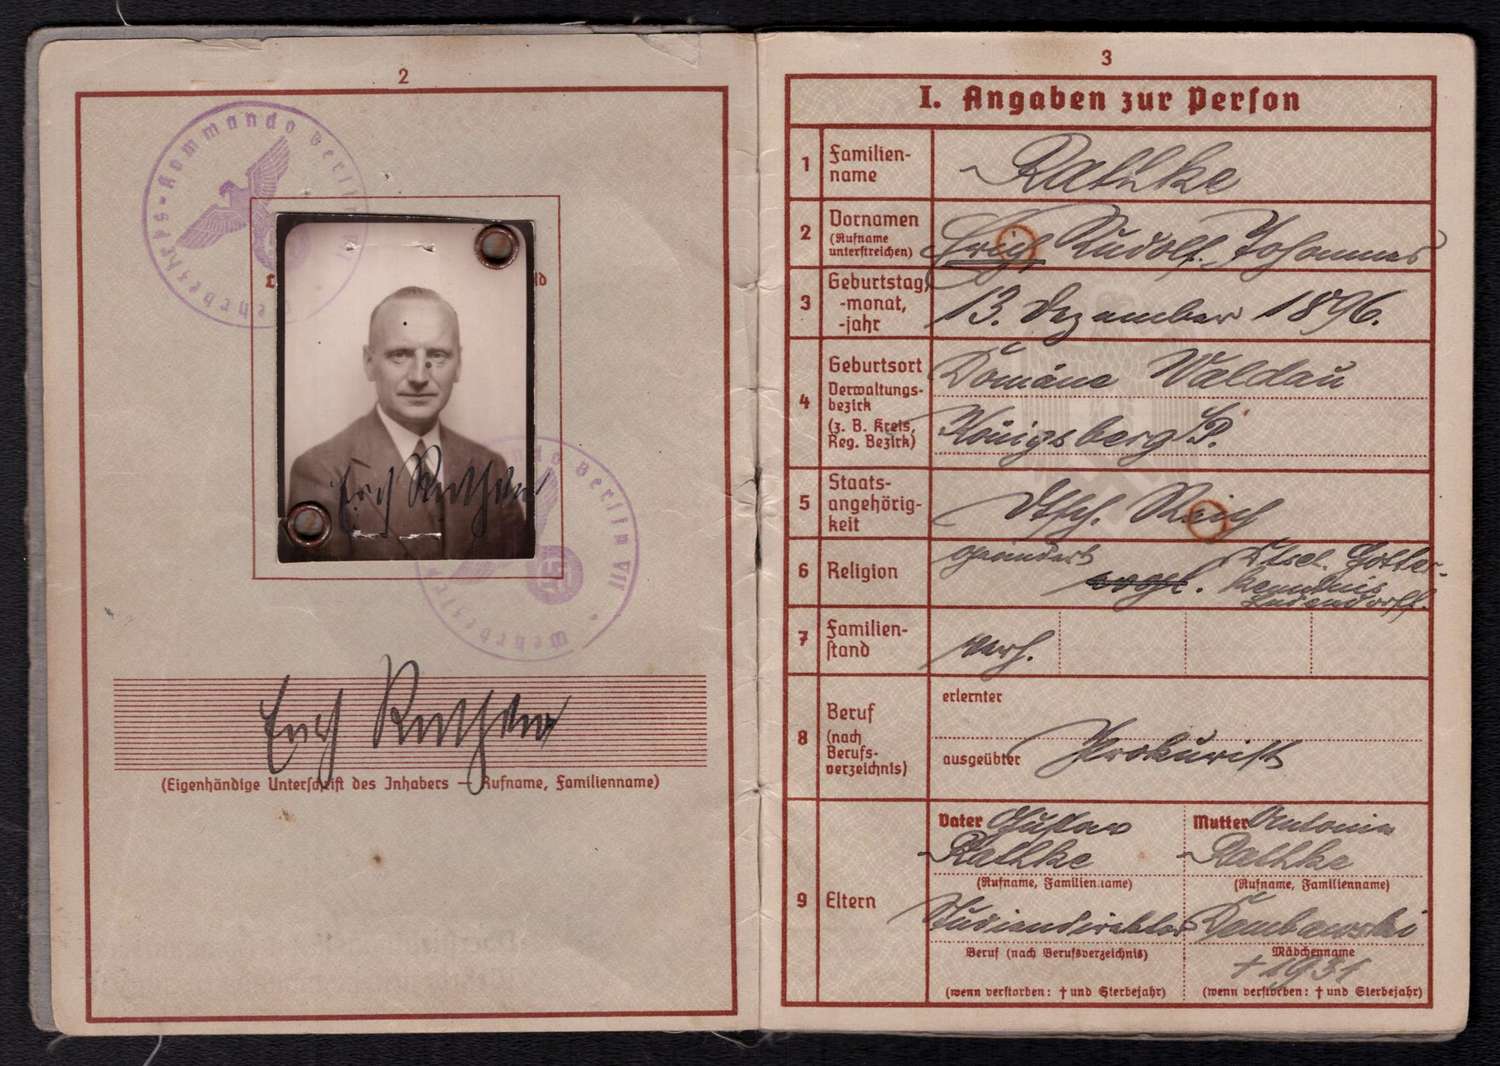 2
Wehrbezirks-Kommando Berlin VII
Erich Rathke
Wehrbezirks-Kommando Berlin VII
Erich Rathke
(Eigenhändige Unterschrift des Inhabers — Rufname, Familienname)
3
I. Angaben zur Person
1 Familien-
name
Rathke
2 Vornamen
(Rufname
unterstreichen)
Erich Rudolf Johannes
3 Geburtstag,
-monat,
-jahr
13. Dezember 1896.
4 Geburtsort
Verwaltungs-
bezirk
(z. B. Kreis,
Reg. Bezirk)
Domäne Waldau
Königsberg P.
5 Staats-
angehörig-
keit
Dtsch. Reich
6 Religion
geändert
evgl.
Dtsch. Gotter-
kenntnis
Ludendorff.
7 Familien-
stand
verh.
8 Beruf
(nach
Berufs-
verzeichnis)
erlernter
ausgeübter Prokurist
9 Eltern
Vater Gustav
Rathke
(Rufname, Familienname)
Studiendirektor
Beruf (nach Berufsverzeichnis)
(wenn verstorben: † und Sterbejahr)
Mutter Antonie
Rathke
(Rufname, Familienname)
Dembowski
Mädchenname
† 1931
(wenn verstorben: † und Sterbejahr)